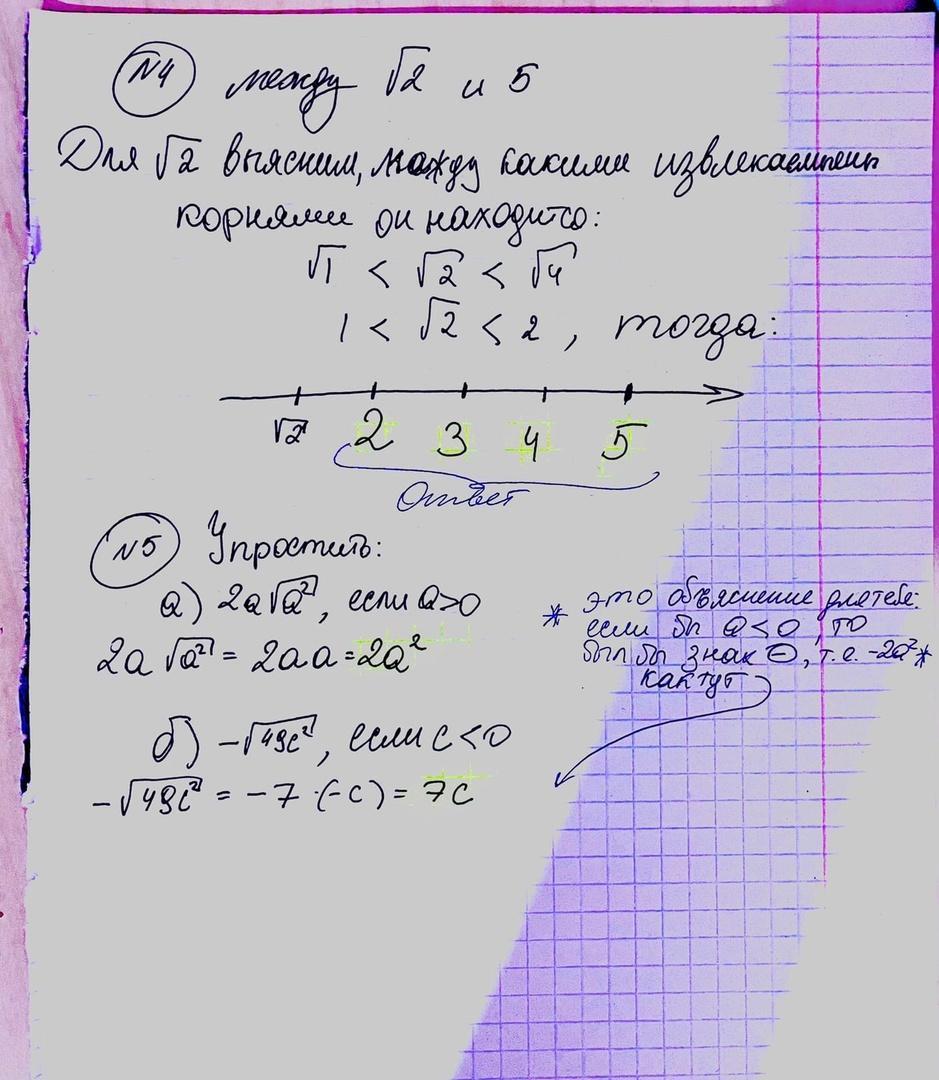 №4 между √2 и 5
Для √2 выясним, между какими извлекаемыми
корнями он находится:
√1 < √2 < √4
1 < √2 < 2, тогда:
√2 2 3 4 5
Ответ
№5 Упростить:
а) 2a√a², если a>0
2a√a² = 2aa = 2a²
* это объяснение для тебя:
если бы a<0, то
был бы знак ⊖, т.е. -2a² *
как тут
б) -√49c², если c<0
-√49c² = -7·(-c) = 7c